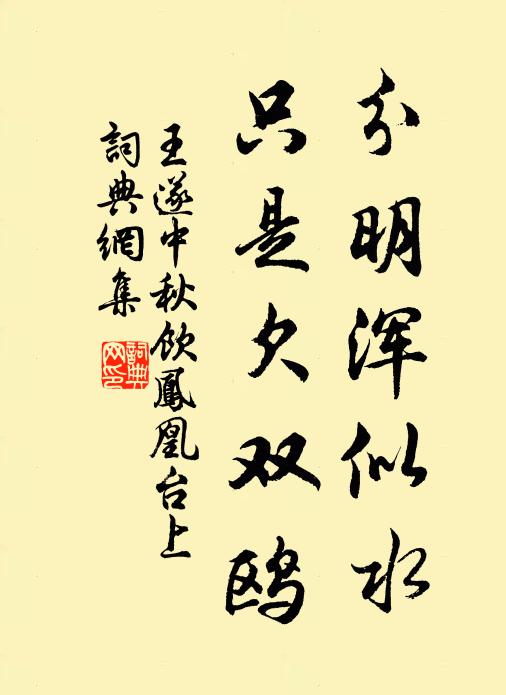 分明浑似水
只是欠双鸥
王遂中秋饮鳳凰台上
詞典網集
詞典網印